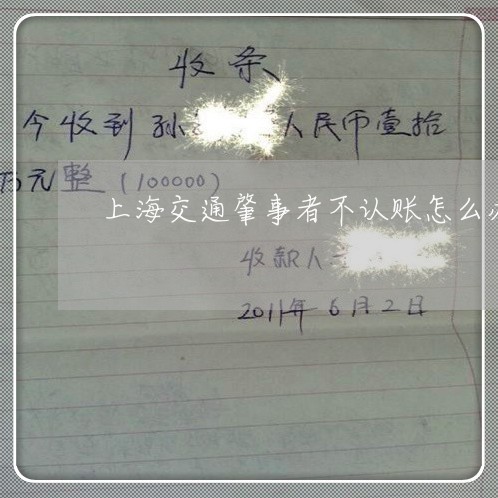 收条
今收到孙 人民币壹拾
万元整(100000)
上海交通肇事者不认账怎么
收款人
2011年6月2日